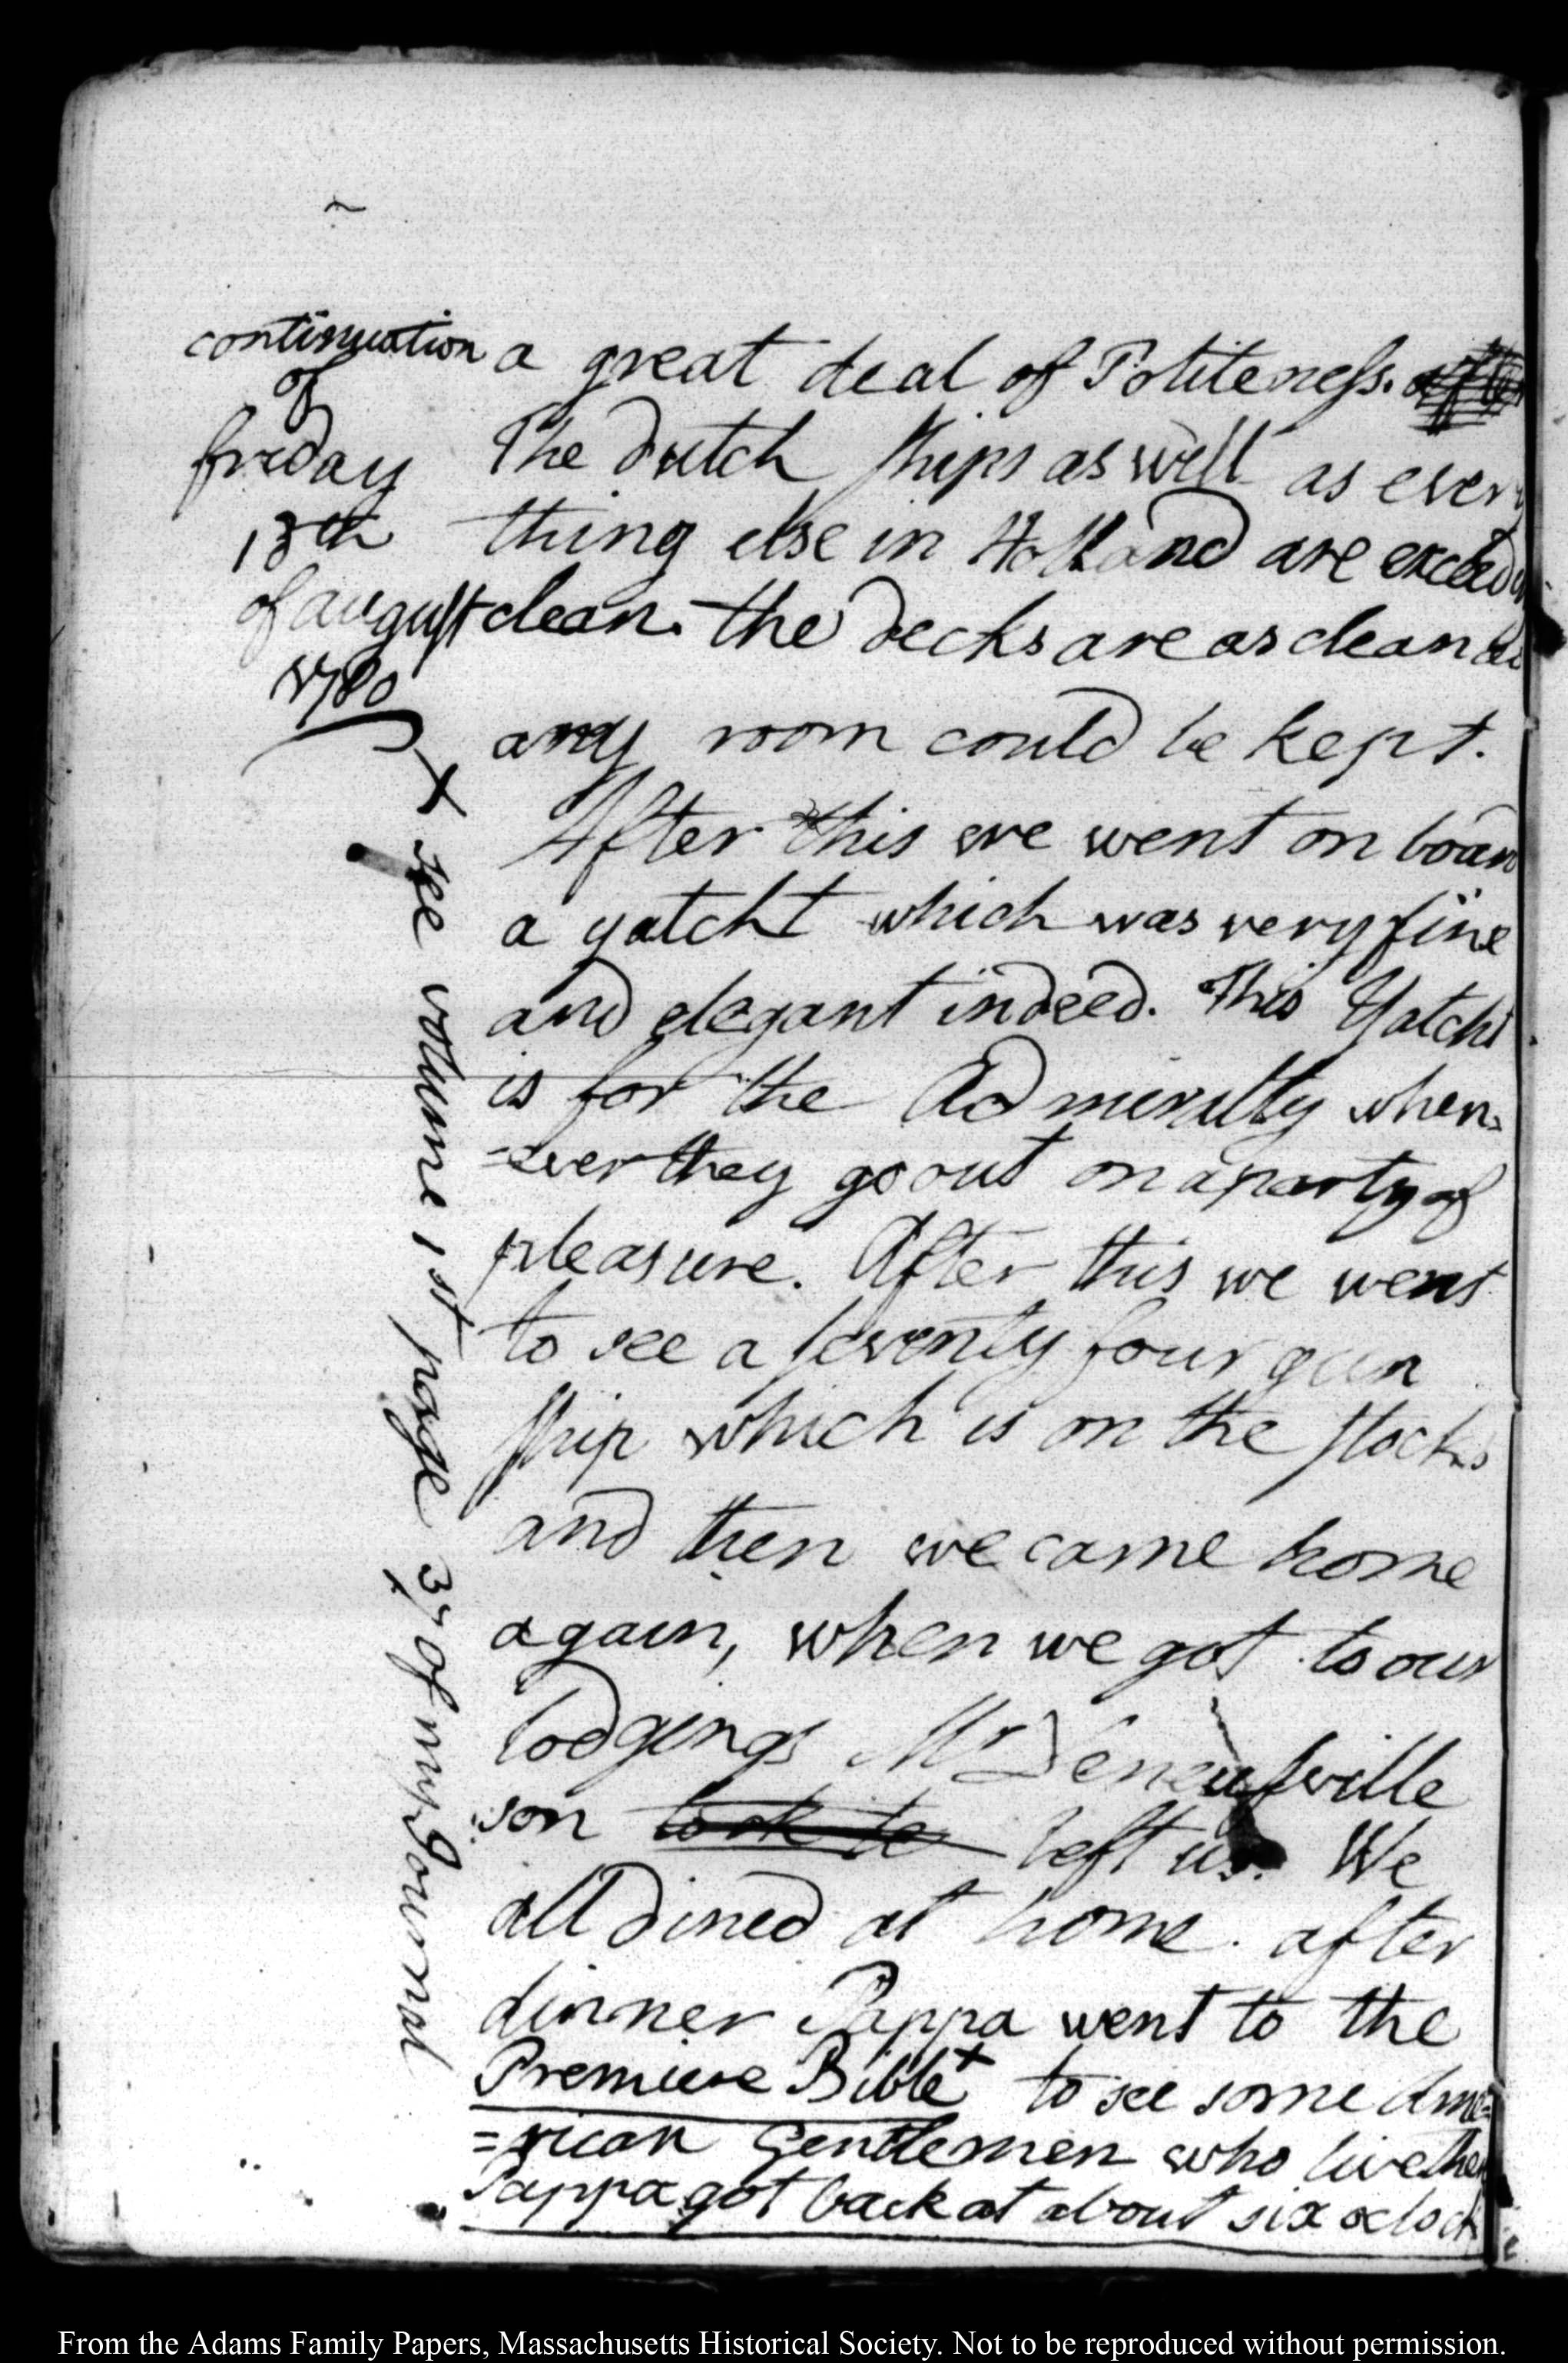 continuation
of
friday
18th
of august
1780
a great deal of Politeness. after
The dutch ships as well as every
thing else in Holland are exceeding
clean. the decks are as clean as
any room could be kept.
After this we went on board
a yatcht which was very fine
and elegant indeed. This Yatcht
is for the Admirulty when=
=ever they go out on a party of
pleasure. After this we went
to see a seventy four gun
ship which is on the stocks
and then we came home
again, when we got to our
lodgings Mr Deneufville
son took le left us. We
all dined at home. after
dinner Pappa went to the
Premiere Bible + to see some Ame=
=rican Gentlemen who live there
Pappa got back at about six oclock
+ see volume 1st page 37 of my Journal
From the Adams Family Papers, Massachusetts Historical Society. Not to be reproduced without permission.